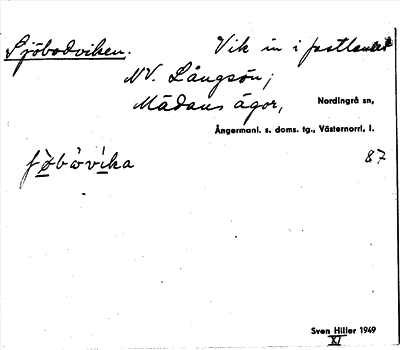 Sjöbodviken. Vik in i fastlandet
NV. Långsön;
Mädans ägor, Nordingrå sn,
Ångermanl. s. doms. tg., Västernorrl. l.
87
Sven Hiller 1949
XI